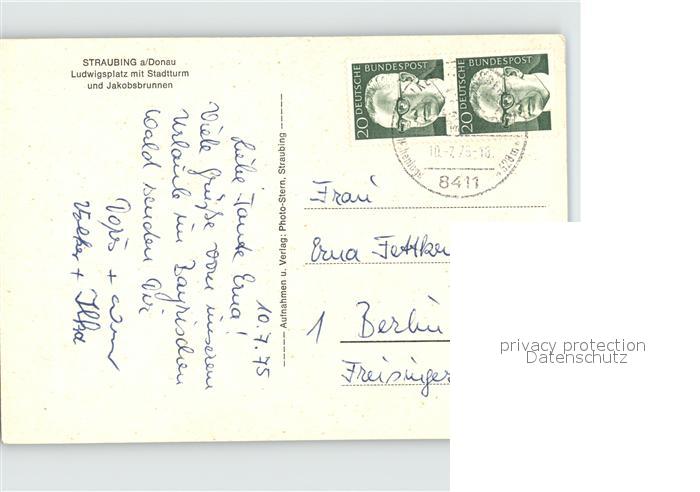 STRAUBING a/Donau
Ludwigsplatz mit Stadtturm
und Jakobsbrunnen
10.7.75
Liebe Tante Erna!
Viele Grüße von unserem
Urlaub im Bayrischen
Wald senden Dir
Volker + Ilka
Aufnahmen u. Verlag: Photo-Stern, Straubing
DEUTSCHE BUNDESPOST
20
DEUTSCHE BUNDESPOST
20
10.-7.75-18
8411
Frau
Erna
1 Berlin
Freisinger
privacy protection
Datenschutz